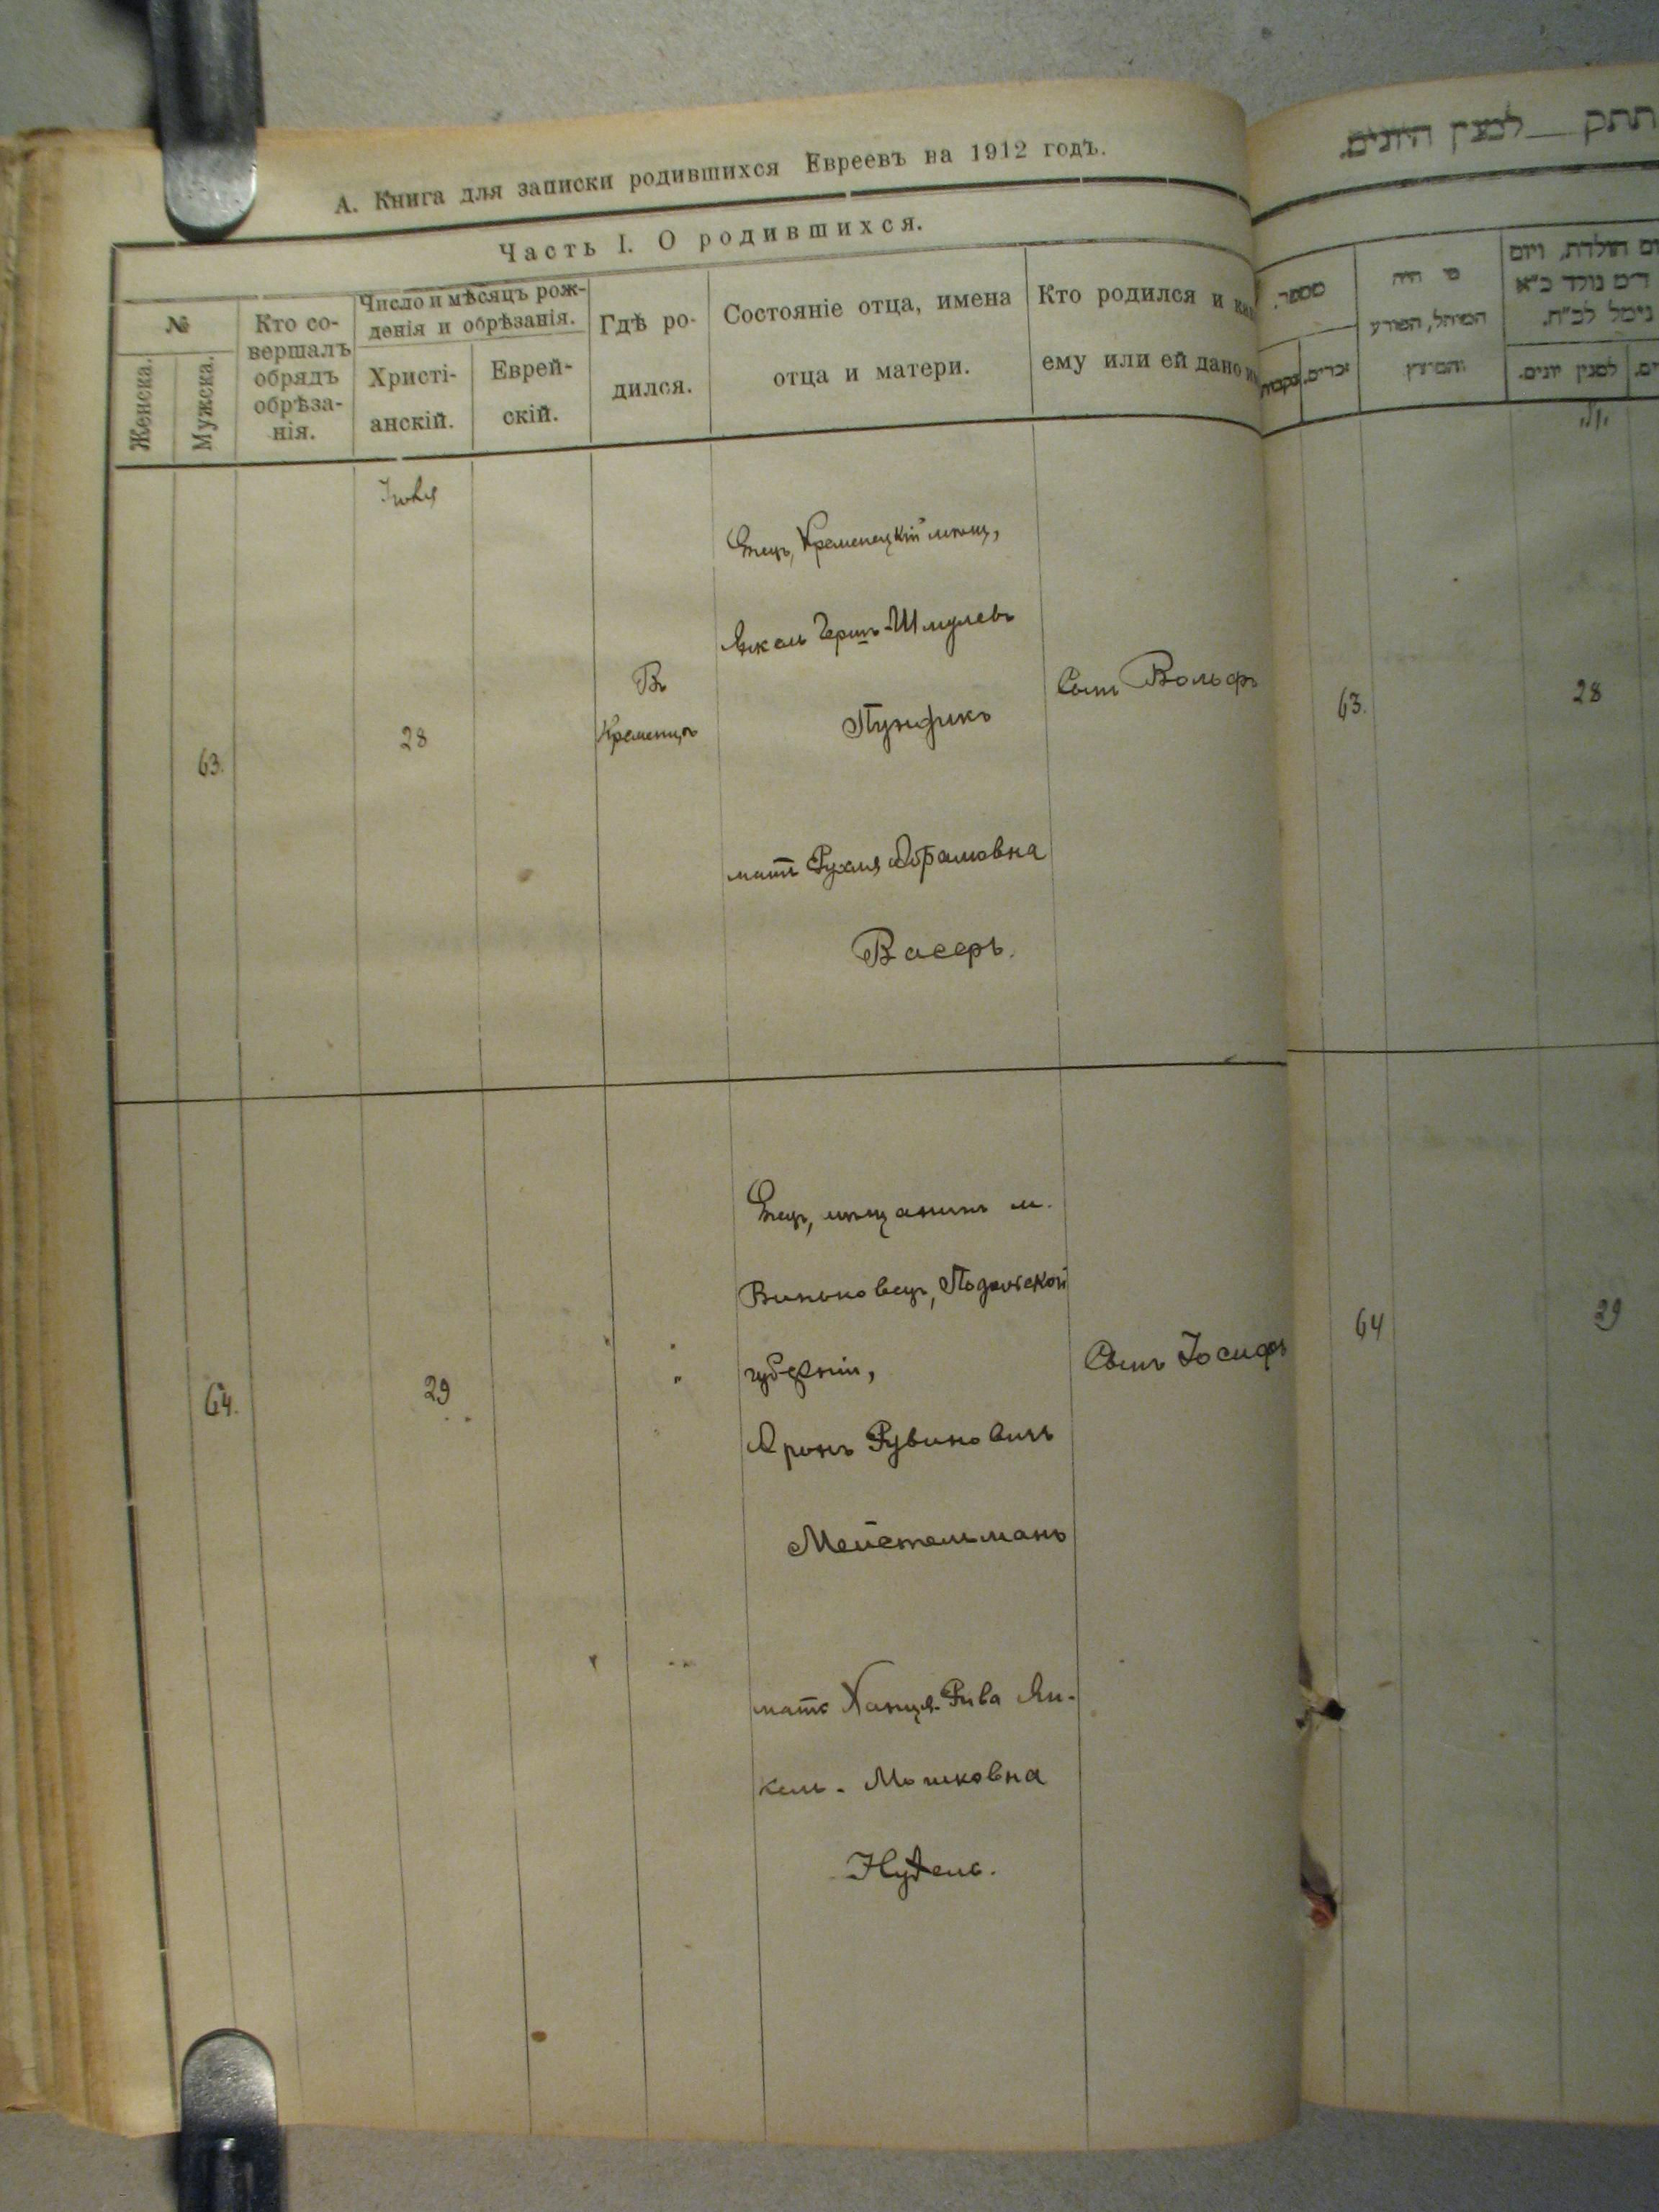 А. Книга для записки родившихся Евреевъ на 1912 годъ.
Часть I. О родившихся.
№
Женска.
Мужска.
Кто со-
вершалъ
обрядъ
обрѣза-
нія.
Число и мѣсяцъ рож-
денія и обрѣзанія.
Христі-
анскій.
Еврей-
скій.
Гдѣ ро-
дился.
Состояніе отца, имена
отца и матери.
Кто родился и
ему или ей дано
63.
Іюля
28
Въ
Кременцѣ
Отецъ, Кременецкій мѣщ,
Янкель Герщъ-Шмулевъ
Пундикъ
мать Рухля Абрамовна
Васеръ.
Сынъ Вольфъ
64.
29
" 
Отецъ, мѣщанинъ м.
Виньковецъ, Подольской
губерніи,
Аронъ Рувиновичъ
Мейстельманъ
мать Ханця-Рива Ян-
кель-Мошковна
Нудель.
Сынъ Іосифъ
תתק למנין היונים.
מספר.
זכרים.
נקבות
מי היה
המוהל, הפורע
והמוצץ
ום הולדת, ויום
לפנין יונים.
63.
28
64
29